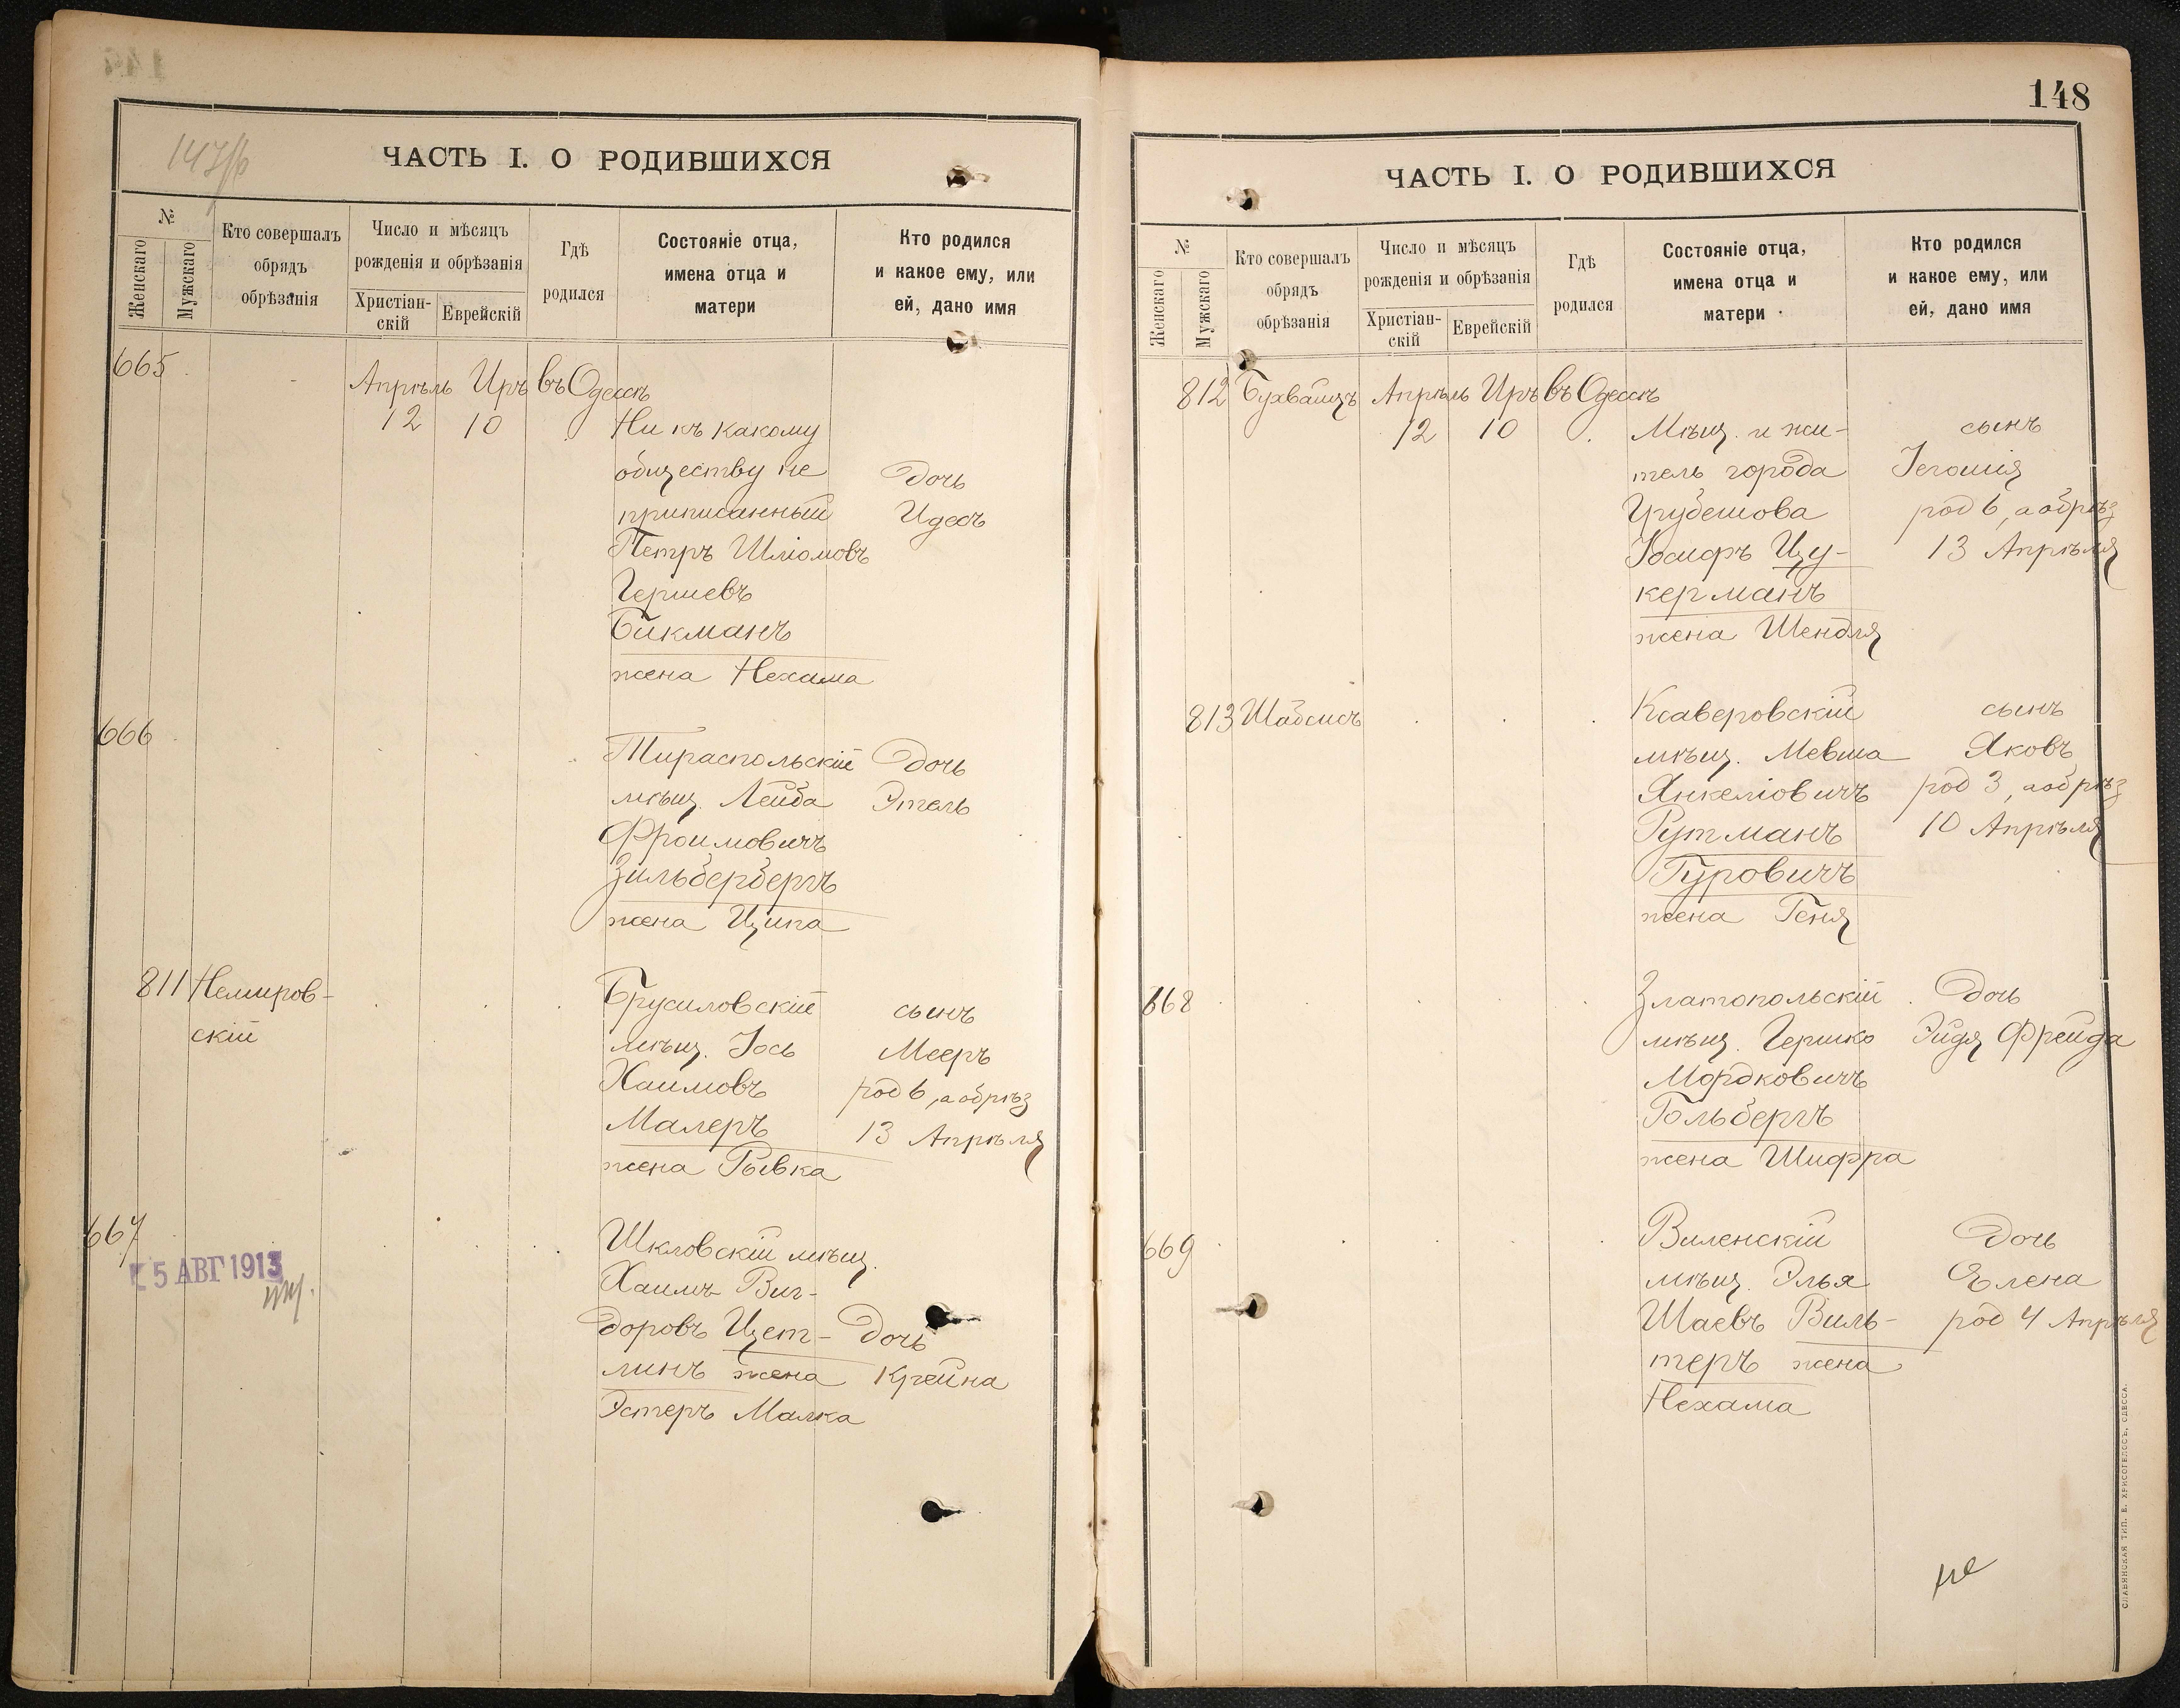 ЧАСТЬ I. О РОДИВШИХСЯ
№
Женскаго
Мужскаго
Кто совершалъ
обрядъ
обрѣзанія
Число и мѣсяцъ
рожденія и обрѣзанія
Христіан-
скій
Еврейскій
Гдѣ
родился
Состояніе отца,
имена отца и
матери
Кто родился
и какое ему, или
ей, дано имя
665
Апрѣль Иръ въ Одессѣ
12 10 Ни къ какому
обществу не
приписанный
Петръ Шліомовъ
Гершевъ
Бикманъ
жена Нехама
Дочь
Идесъ
666
Тираспольскій
мѣщ. Лейба
Фроимовичъ
Зильбербергъ
жена Ципа
Дочь
Этель
811 Немиров-
скій
Брусиловскій
мѣщ. Іось
Хаимовъ
Малеръ
жена Рывка
сынъ
Мееръ
род 6, а обрѣз
13 Апрѣля
667
5 АВГ 1913
Шкловскій мѣщ.
Хаимъ Виг-
доровъ Цет-
линъ жена
Эстеръ Малка
Дочь
Крейна
148
ЧАСТЬ I. О РОДИВШИХСЯ
№
Женскаго
Мужскаго
Кто совершалъ
обрядъ
обрѣзанія
Число и мѣсяцъ
рожденія и обрѣзанія
Христіан-
скій
Еврейскій
Гдѣ
родился
Состояніе отца,
имена отца и
матери
Кто родился
и какое ему, или
ей, дано имя
812 Бухвайцъ Апрѣль Иръ въ Одессѣ
12 10 Мѣщ. и жи-
тель города
Грубешова
Іосифъ Цу-
керманъ
жена Шендля
сынъ
Іегошія
род 6, а обрѣз
13 Апрѣля
813 Шабсисъ
Ксаверовскій
мѣщ. Мевша
Янкеліовичъ
Рутманъ
Гуровичъ
жена Геня
сынъ
Яковъ
род 3, а обрѣз
10 Апрѣля
668
Златопольскій
мѣщ. Гершко
Мордковичъ
Гольбергъ
жена Шифра
Дочь
Эйдя Фрейда
669
Виленскій
мѣщ. Элья
Шаевъ Виль-
теръ жена
Нехама
Дочь
Елена
род 4 Апрѣля
СЛАВЯНСКАЯ ТИП. Е. ХРИСОГЕЛОСЪ, ОДЕССА.